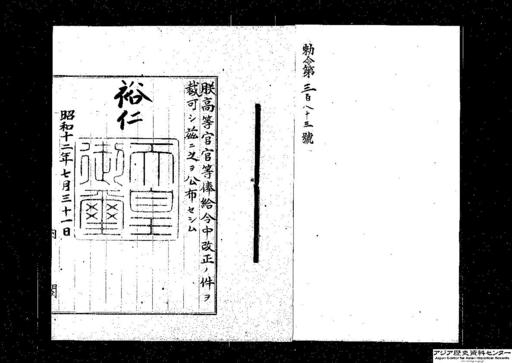 勅令第三百八十三號
朕高等官官等俸給令中改正ノ件ヲ
裁可シ茲ニ之ヲ公布セシム
裕仁
天皇
御璽
昭和十二年七月三十一日
内閣
アジア歴史資料センター
Japan Center for Asian Historical Records